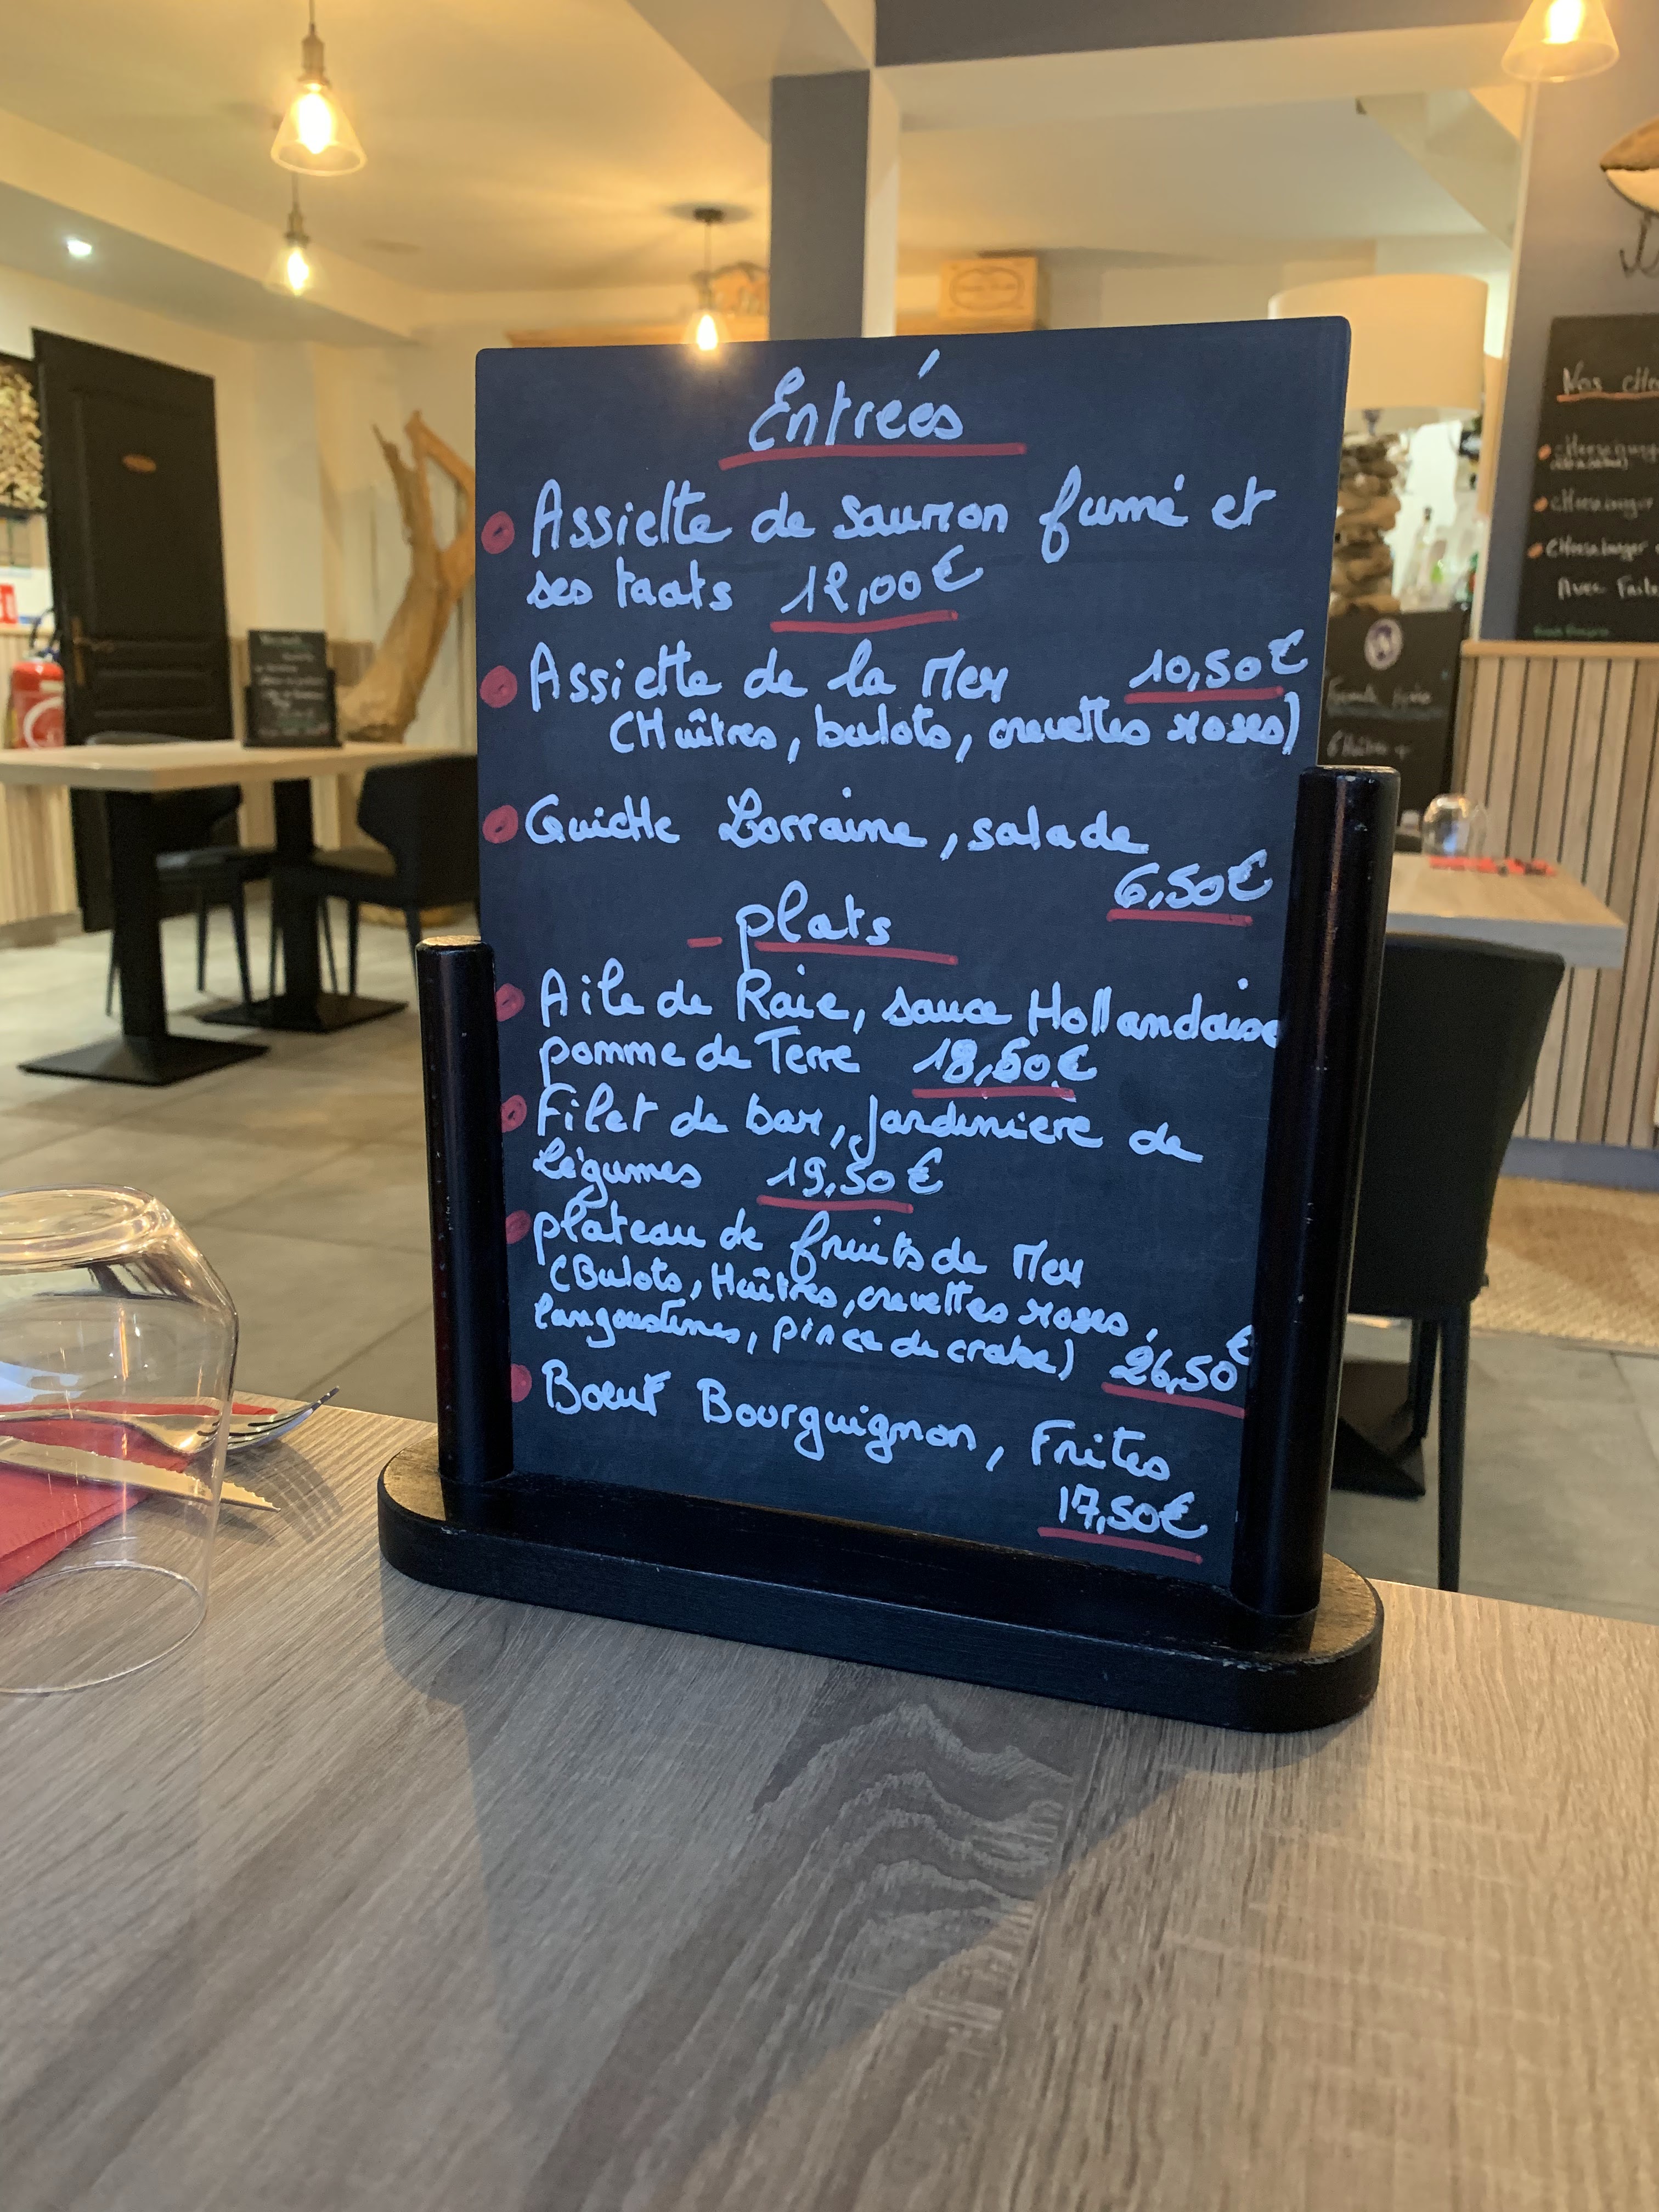 Entreés
Assiette de saumon fumé et
ses toats 12,00€
Assiette de la Mer 10,50€
(Huîtres, bulots, crevettes roses)
Quiche Lorraine, salade
6,50€
- plats
Aile de Raie, sauce Hollandaise
pomme de Terre 18,50€
Filet de bar, jardiniere de
légumes 19,50€
plateau de fruits de Mer
(Bulots, Huîtres, crevettes roses,
langoustines, pince de crabe) 26,50€
Boeuf Bourguignon, Frites
17,50€
Nos
cHeeseburger
cHeeseburger
cHeeseburger
Avec